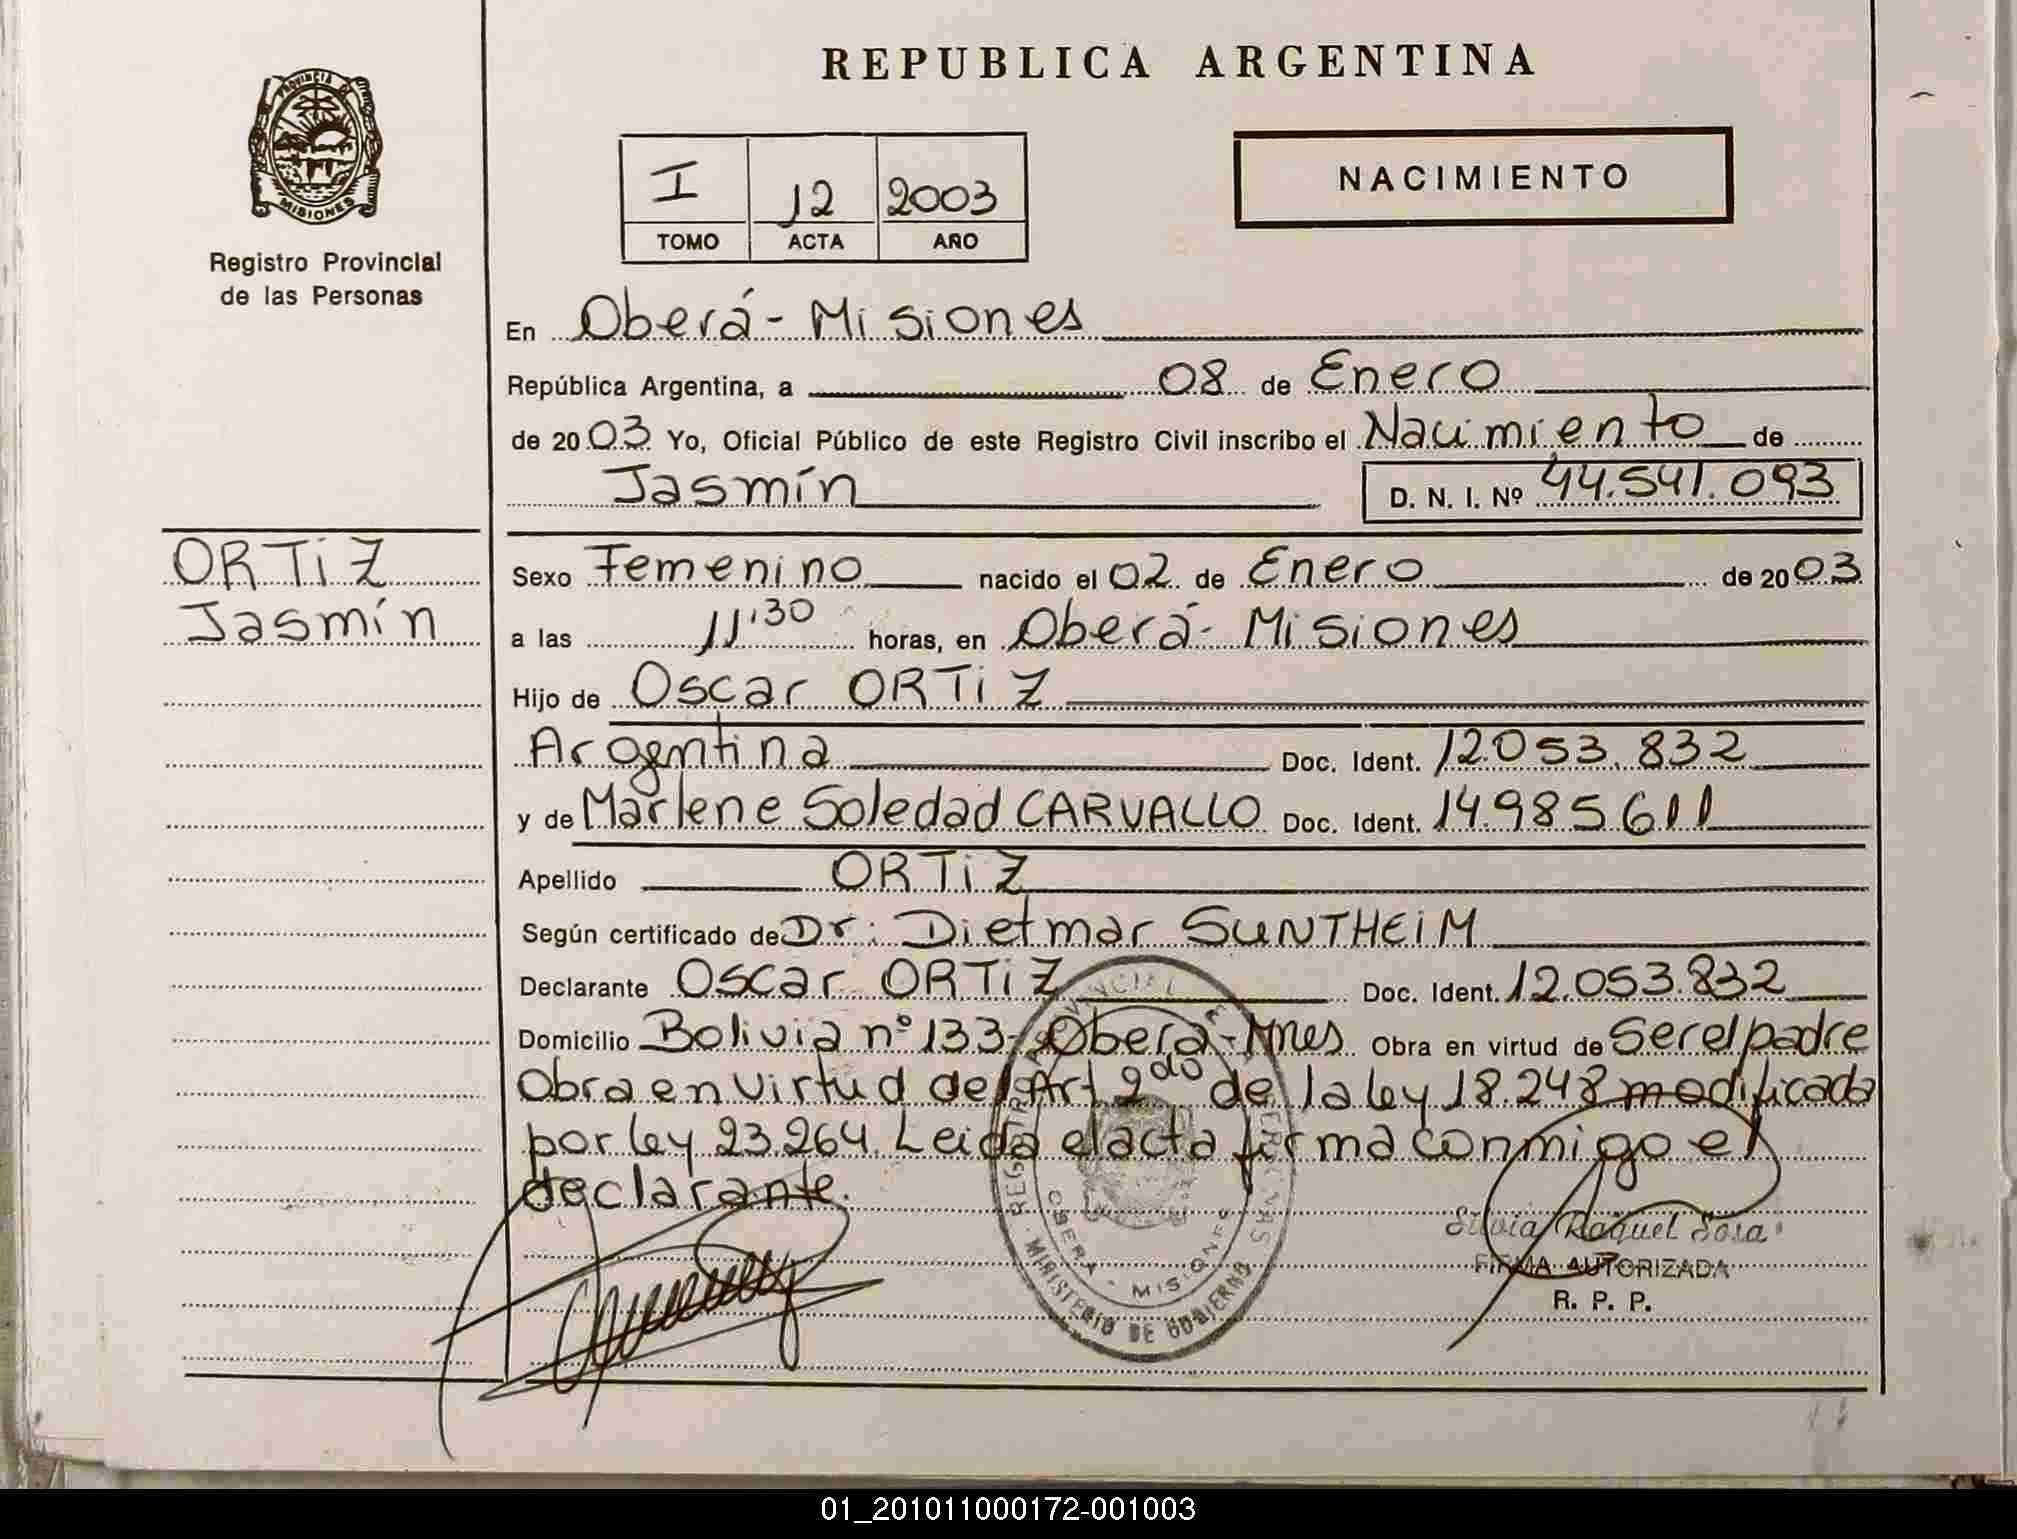 REPUBLICA ARGENTINA
PROVINCIA DE
MISIONES
Registro Provincial
de las Personas
I 12 2003
TOMO ACTA AÑO
NACIMIENTO
En Oberá - Misiones
República Argentina, a 08 de Enero
de 2003 Yo, Oficial Público de este Registro Civil inscribo el Nacimiento de
Jasmín D. N. I. Nº 44.541.093
ORTiZ
Jasmín
Sexo Femenino nacido el 02 de Enero de 2003
a las 11'30 horas, en Oberá - Misiones
Hijo de Oscar ORTiZ
Argentina Doc. Ident. 12.053.832
y de Marlene Soledad CARVALLO Doc. Ident. 14.985611
Apellido ORTiZ
Según certificado de Dr: Dietmar SUNTHEiM
Declarante Oscar ORTiZ Doc. Ident. 12.053.832
Domicilio Bolivia nº 133 - Oberá - Mnes Obra en virtud de Ser el padre
Obra en virtud del Art 2do de la ley 18.248 modificada
por ley 23.264. Leida el acta firma conmigo el
declarante.
REGISTRO PROVINCIAL DE LAS PERSONAS
OBERA - MISIONES
MINISTERIO DE GOBIERNO
Silvia Raquel Sosa
FIRMA AUTORIZADA
R. P. P.
01_201011000172-001003